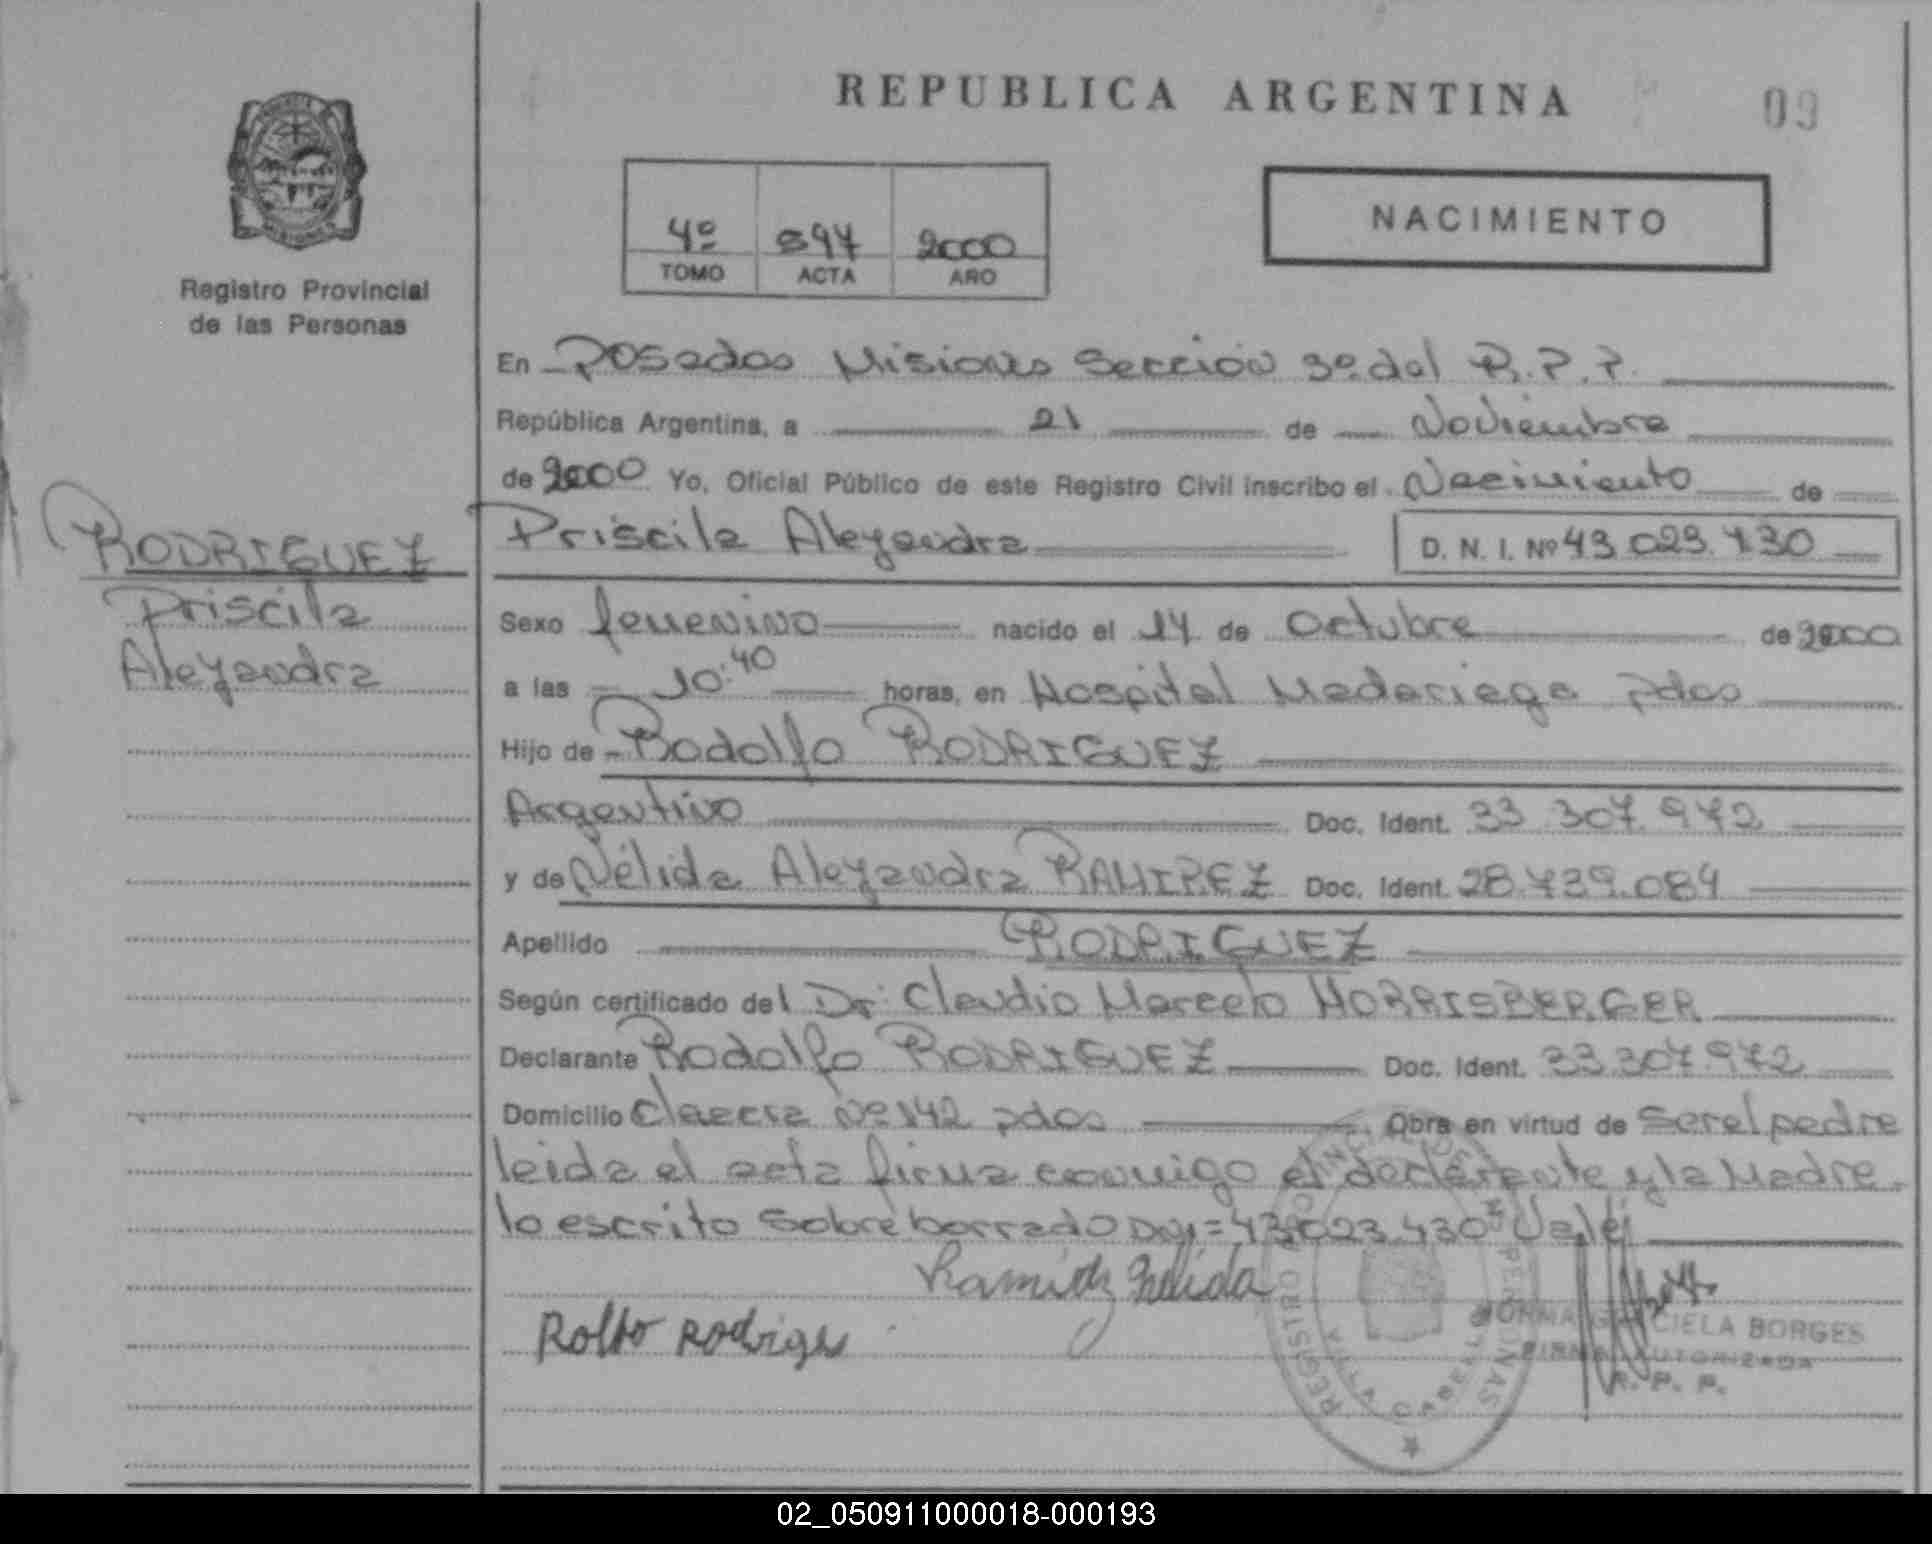 REPUBLICA ARGENTINA
09
4º 597 2000
TOMO ACTA AÑO
NACIMIENTO
Registro Provincial
de las Personas
En Posadas Misiones Sección 3º del R.P.P.
República Argentina, a 21 de Noviembre
de 2000 Yo, Oficial Público de este Registro Civil inscribo el Nacimiento de
Priscila Aleyandra D. N. I. Nº 43 023.430
RODRIGUEZ
Priscila
Aleyandra
Sexo femenino nacido el 14 de Octubre de 2000
a las 10:40 horas, en Hospital Madariaga pdas
Hijo de Rodolfo RODRIGUEZ
Argentino Doc. Ident. 33 307.972
y de Nélida Aleyandra RAMIREZ Doc. Ident. 28.739.084
Apellido RODRIGUEZ
Según certificado del Dr: Claudio Marcelo HORRISBERGER
Declarante Rodolfo RODRIGUEZ Doc. Ident. 33.307.972
Domicilio Nº 142 pdas Obra en virtud de ser el padre
leida el acta firma conmigo el declarante y la Madre.
lo escrito sobre borrado DNI=43023.430 Vale
Ramirez Nelida
Rolfo Rodrigues
NORMA GRACIELA BORGES
FIRMA AUTORIZADA
R. P. P.
02_050911000018-000193